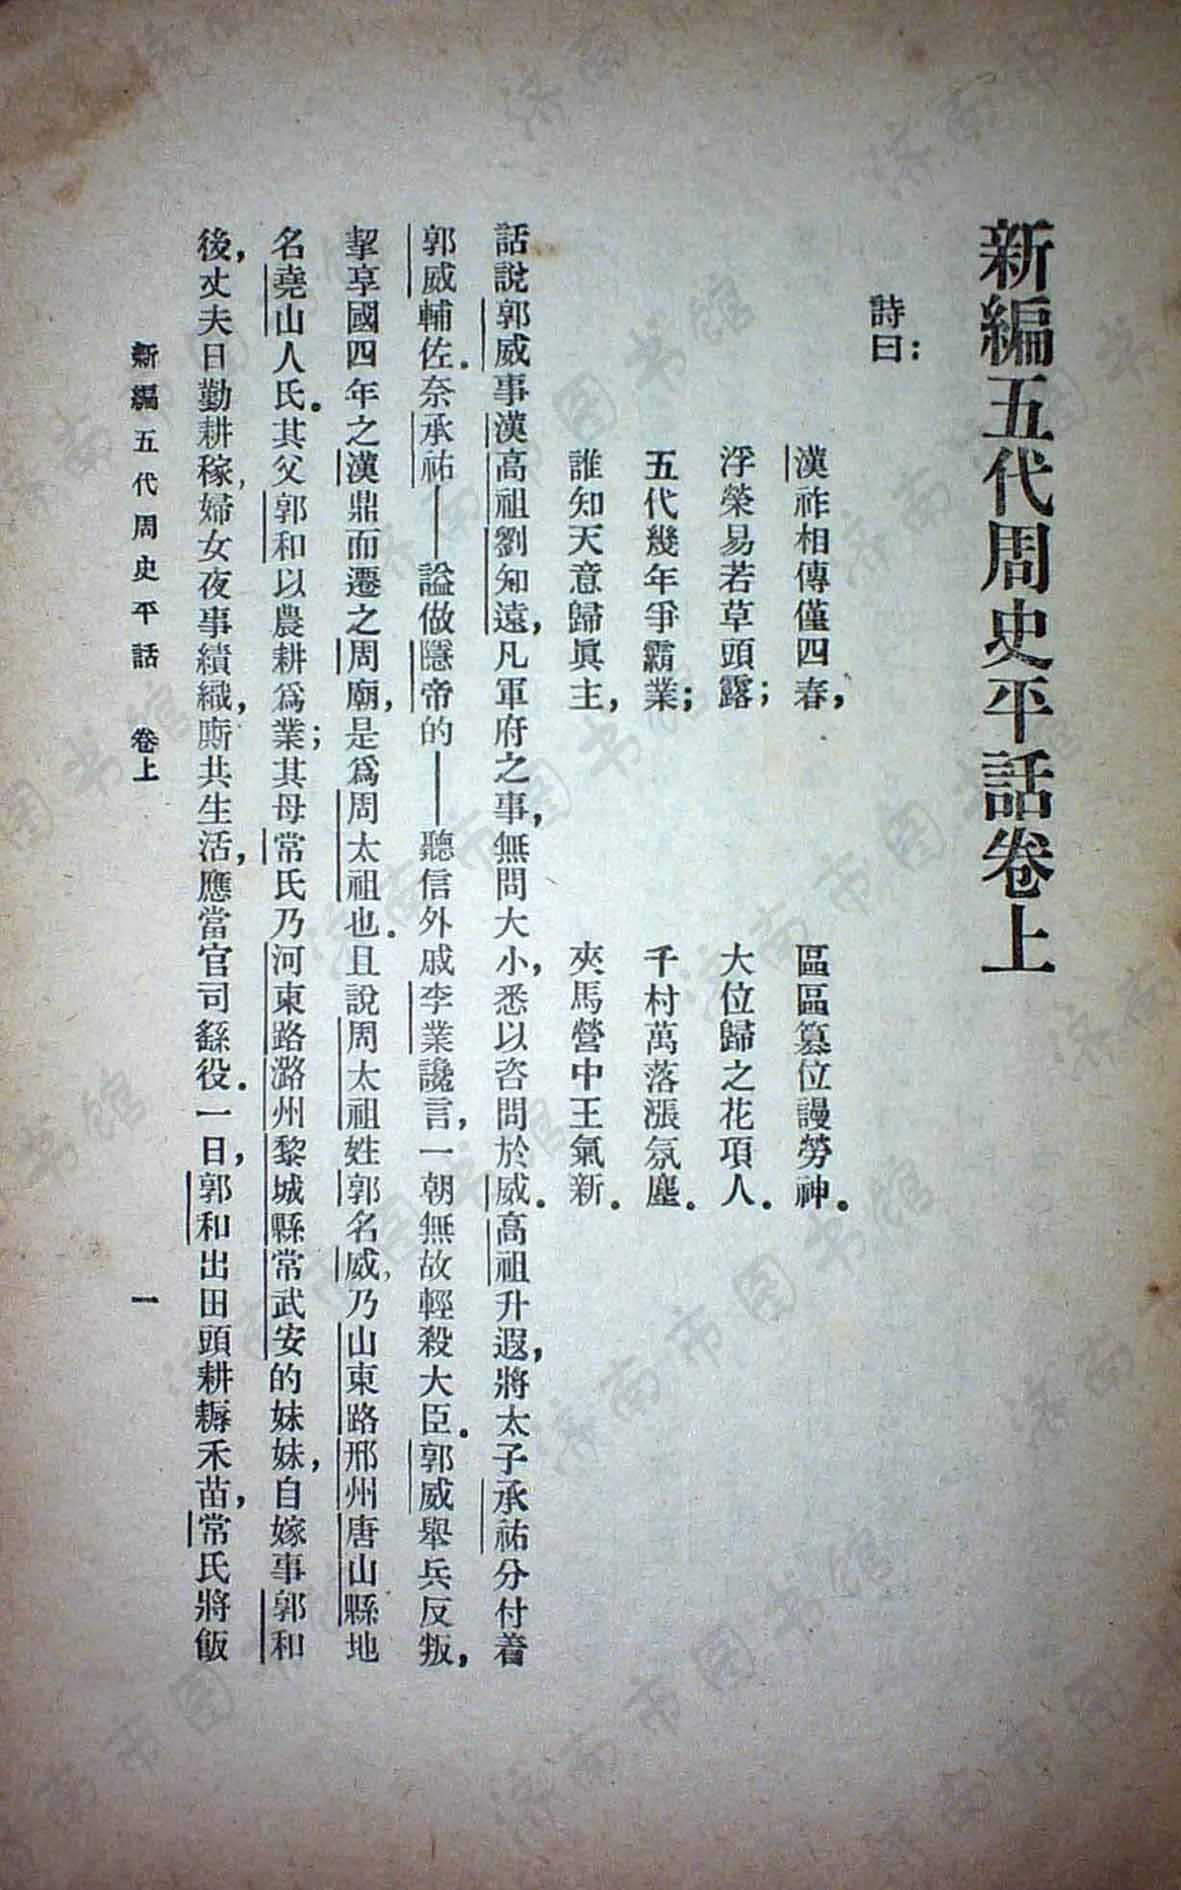 新編五代周史平話卷上
詩曰：
漢祚相傳僅四春，區區篡位謾勞神。
浮榮易若草頭露；大位歸之花項人。
五代幾年爭霸業；千村萬落漲氛塵。
誰知天意歸眞主，夾馬營中王氣新。
話說郭威事漢高祖劉知遠，凡軍府之事，無問大小，悉以咨問於威。高祖升遐，將太子承祐分付着
郭威輔佐。奈承祐——謚做隱帝的——聽信外戚李業讒言，一朝無故輕殺大臣。郭威舉兵反叛，
挈享國四年之漢鼎而遷之周廟，是爲周太祖也。且說周太祖姓郭名威，乃山東路邢州唐山縣地
名堯山人氏。其父郭和以農耕爲業；其母常氏乃河東路潞州黎城縣常武安的妹妹，自嫁事郭和
後，丈夫日勤耕稼，婦女夜事績織，廝共生活，應當官司繇役。一日，郭和出田頭耕耨禾苗，常氏將飯
新編五代周史平話 卷上 一
济南市图书馆